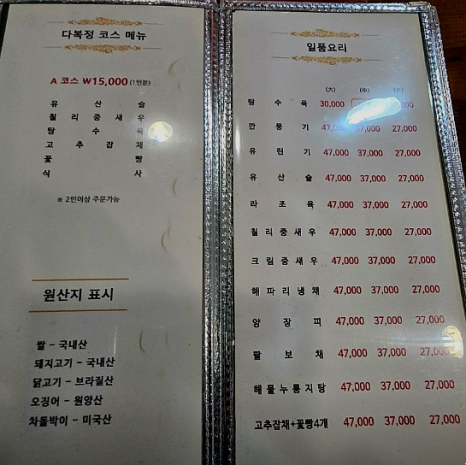 다복정 코스 메뉴
A 코스 ₩15,000 (1인분)
유 산 슬
칠 리 중 새 우
탕 수 육
고 추 잡 채
꽃 빵
식 사
※ 2인이상 주문가능
원산지 표시
쌀 - 국내산
돼지고기 - 국내산
닭고기 - 브라질산
오징어 - 원양산
차돌박이 - 미국산
일품요리
(大) (中) (小)
탕 수 육 30,000
깐 풍 기 47,000 37,000 27,000
유 린 기 47,000 37,000 27,000
유 산 슬 47,000 37,000 27,000
라 조 육 47,000 37,000 27,000
칠 리 중 새 우 47,000 37,000 27,000
크 림 중 새 우 47,000 37,000 27,000
해 파 리 냉 채 47,000 37,000 27,000
양 장 피 47,000 37,000 27,000
팔 보 채 47,000 37,000 27,000
해 물 누 룽 지 탕 47,000 37,000 27,000
고추잡채+꽃빵4개 47,000 37,000 27,000